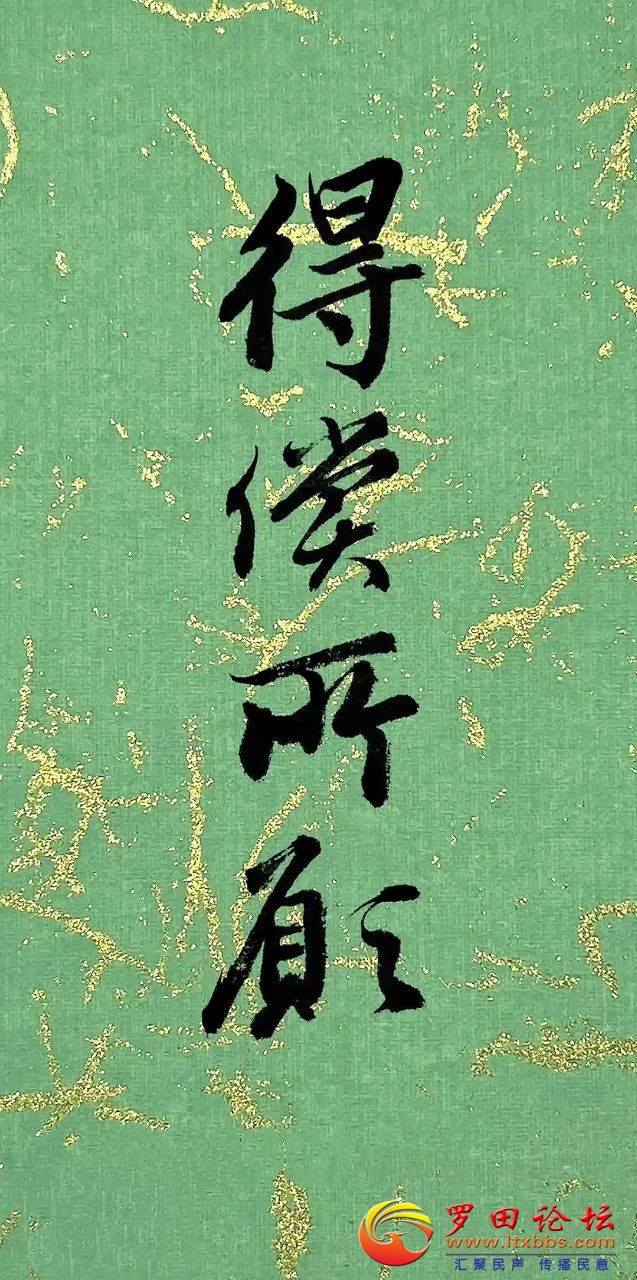 得偿所愿
罗田论坛
www.ltxbbs.com
汇聚民声 传播民意